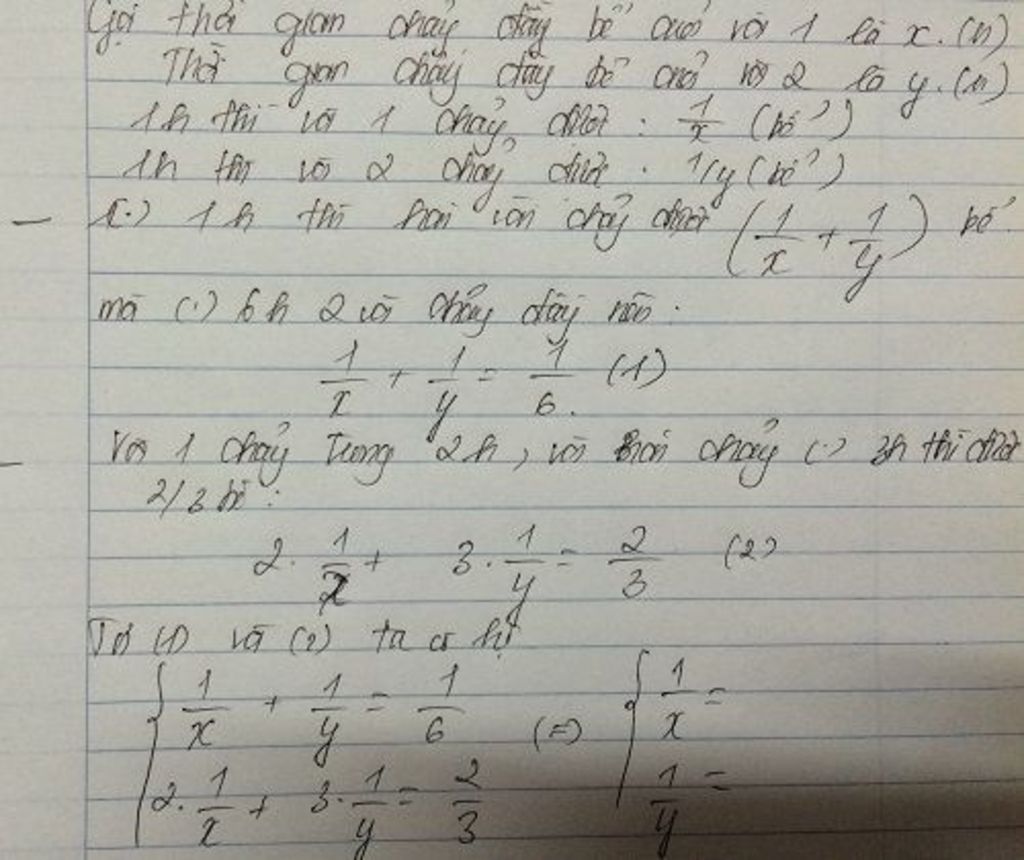 Gọi thời gian chảy đầy bể của vòi 1 là x. (h)
Thời gian chảy đầy bể của vòi 2 là y. (h)
1h thì vòi 1 chảy được : 1/x (bể)
1h thì vòi 2 chảy được : 1/y (bể)
- (.) 1h thì hai vòi chảy được (1/x + 1/y) bể.
mà (.) 6h 2 vòi chảy đầy nên :
1/x + 1/y = 1/6. (1)
- Vòi 1 chảy trong 2h, vòi hai chảy (.) 3h thì được
2/3 bể :
2. 1/x + 3. 1/y = 2/3 (2)
Từ (1) và (2) ta có hệ
{ 1/x + 1/y = 1/6 (=) { 1/x =
2. 1/x + 3. 1/y = 2/3 1/y =